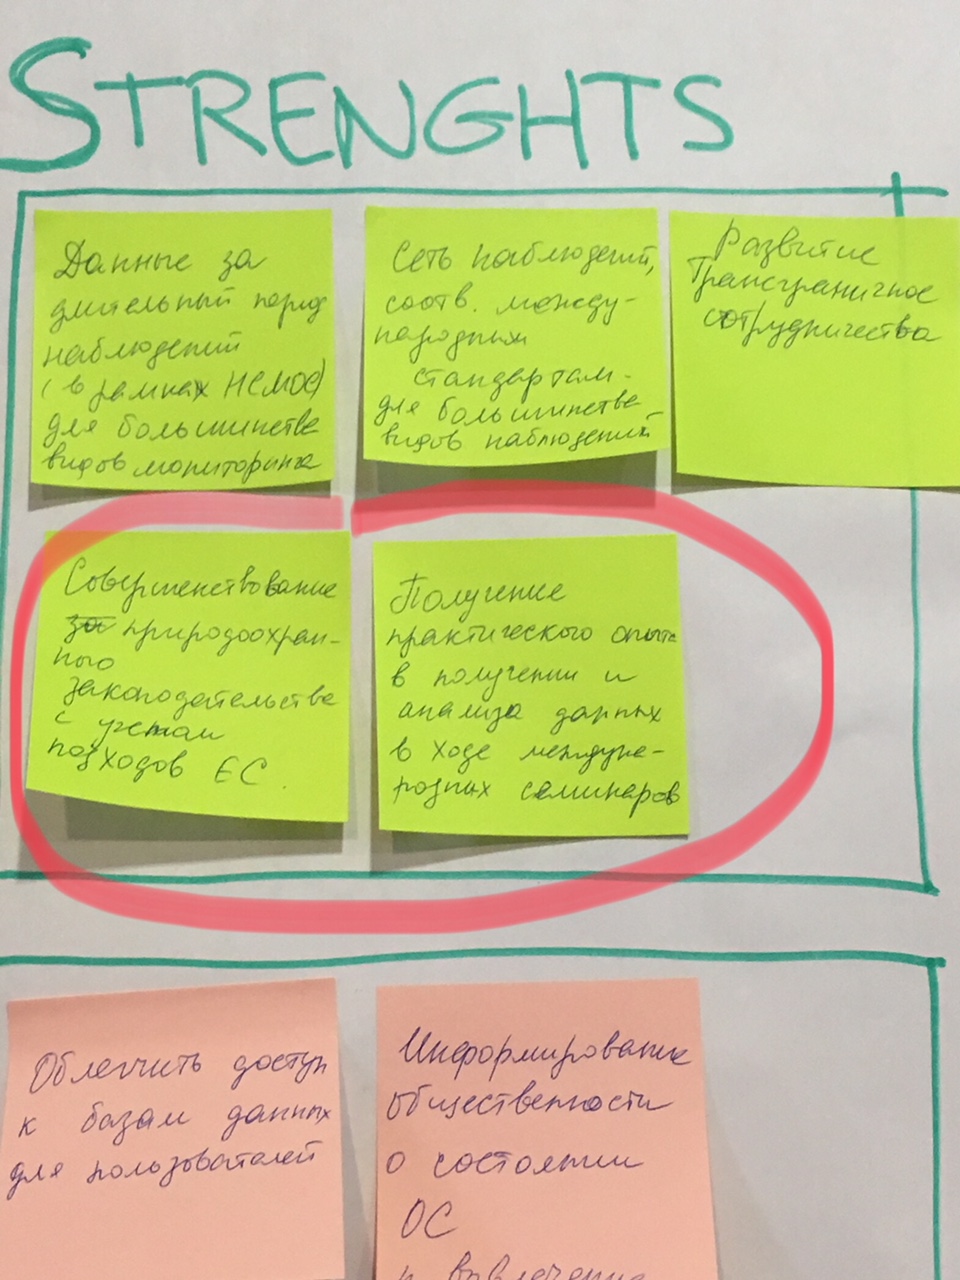 STRENGHTS
Данные за
длительный период
наблюдений
(в рамках НСМОС)
для большинства
видов мониторинга
Сеть наблюдений,
соотв. между-
народным
стандартам -
для большинства
видов наблюдений
Развитие
Трансграничное
сотрудничества
Совершенствование
за природоохран-
ного
законодательства
с учетом
подходов ЕС
Получение
практического опыта
в получении и
анализа данных
в ходе междуна-
родных семинаров
Облегчить доступ
к базам данных
для пользователей
Информирование
общественности
о состоянии
ОС
и вовлечение